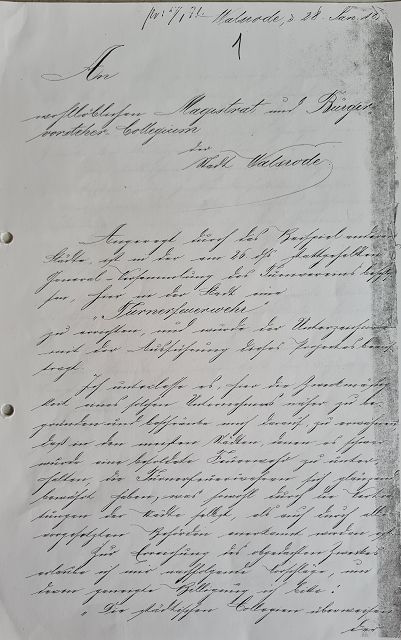 Walsrode, d 28. Jan. 18
1
An
wohllöblichen Magistrat und Bürger-
vorsteher-Collegium
der
Stadt Walsrode
Angeregt durch das Beispiel anderer
Städte, ist in der am 26. d/s stattgehabten
General-Versammlung des Turnvereins beschlo
sen, hier in der Stadt eine
"Turnerfeuerwehr"
zu errichten, und wurde der Unterzeichnete
mit der Ausführung dieses Projectes beauf
tragt.
Ich unterlasse es, hier die Zweckmäßig
keit eines solchen Unternehmens näher zu be-
gründen und beschränke mich darauf, zu erwähnen
daß in den meisten Städten, denen es schwer
würde eine besoldete Feuerwehr zu unter-
halten, die Turnerfeuerwehren sich glänzend
bewährt haben, was sowohl durch die Vertre
tungen der Städte selbst, als auch durch alle
vorgesetzten Behörden anerkannt worden ist.
Zur Erreichung des abgedachten Zweckes
erlaube ich mir nachfolgende Vorschläge, um
deren geneigte Billigung ich bitte:
"Die städtischen Collegien überweisen
der